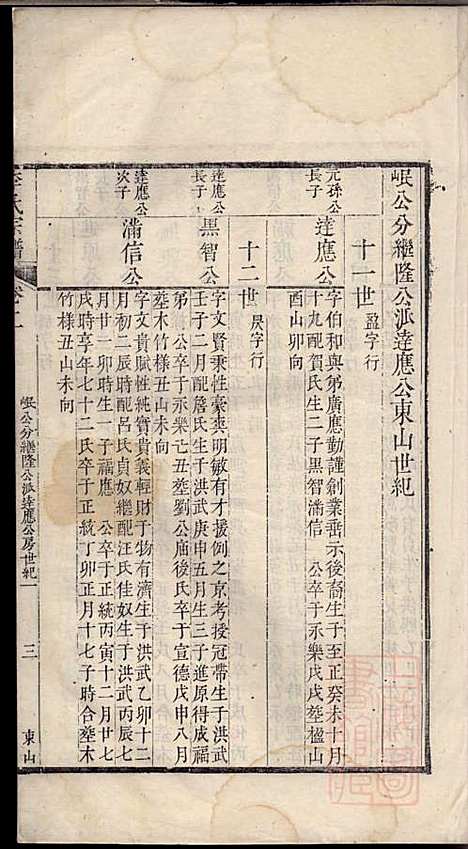 岷公分繼隆公派達應公東山世紀
十一世 盈字行
元孫公長子
達應公
字伯和與弟廣應勤謹創業垂示後裔生于至正癸未十月
十九配賀氏生二子黑智滿信 公卒于永樂戊戌塟楹山
酉山卯向
十二世 昃字行
達應公長子
黑智公
字文賢秉性豪爽明敏有才援例之京考授冠帶生于洪武
壬子二月配詹氏生于洪武庚申五月生三子進原得成福
弟 公卒于永樂乙丑塟劉公廟後氏卒于宣德戊申八月
塟木竹樣丑山未向
達應公次子
滿信公
字文貴賦性純實貴義輕財于物有濟生于洪武乙卯十二
月初二辰時配呂氏貞奴繼配汪氏佳奴生于洪武丙辰七
月廿一卯時生一子福應 公卒于正統丙寅十二月廿七
戌時享年七十二氏卒于正統丁卯正月十七子時合塟木
竹樣丑山未向
李氏宗譜
岷公分繼隆公派達應公房世紀
三
東山